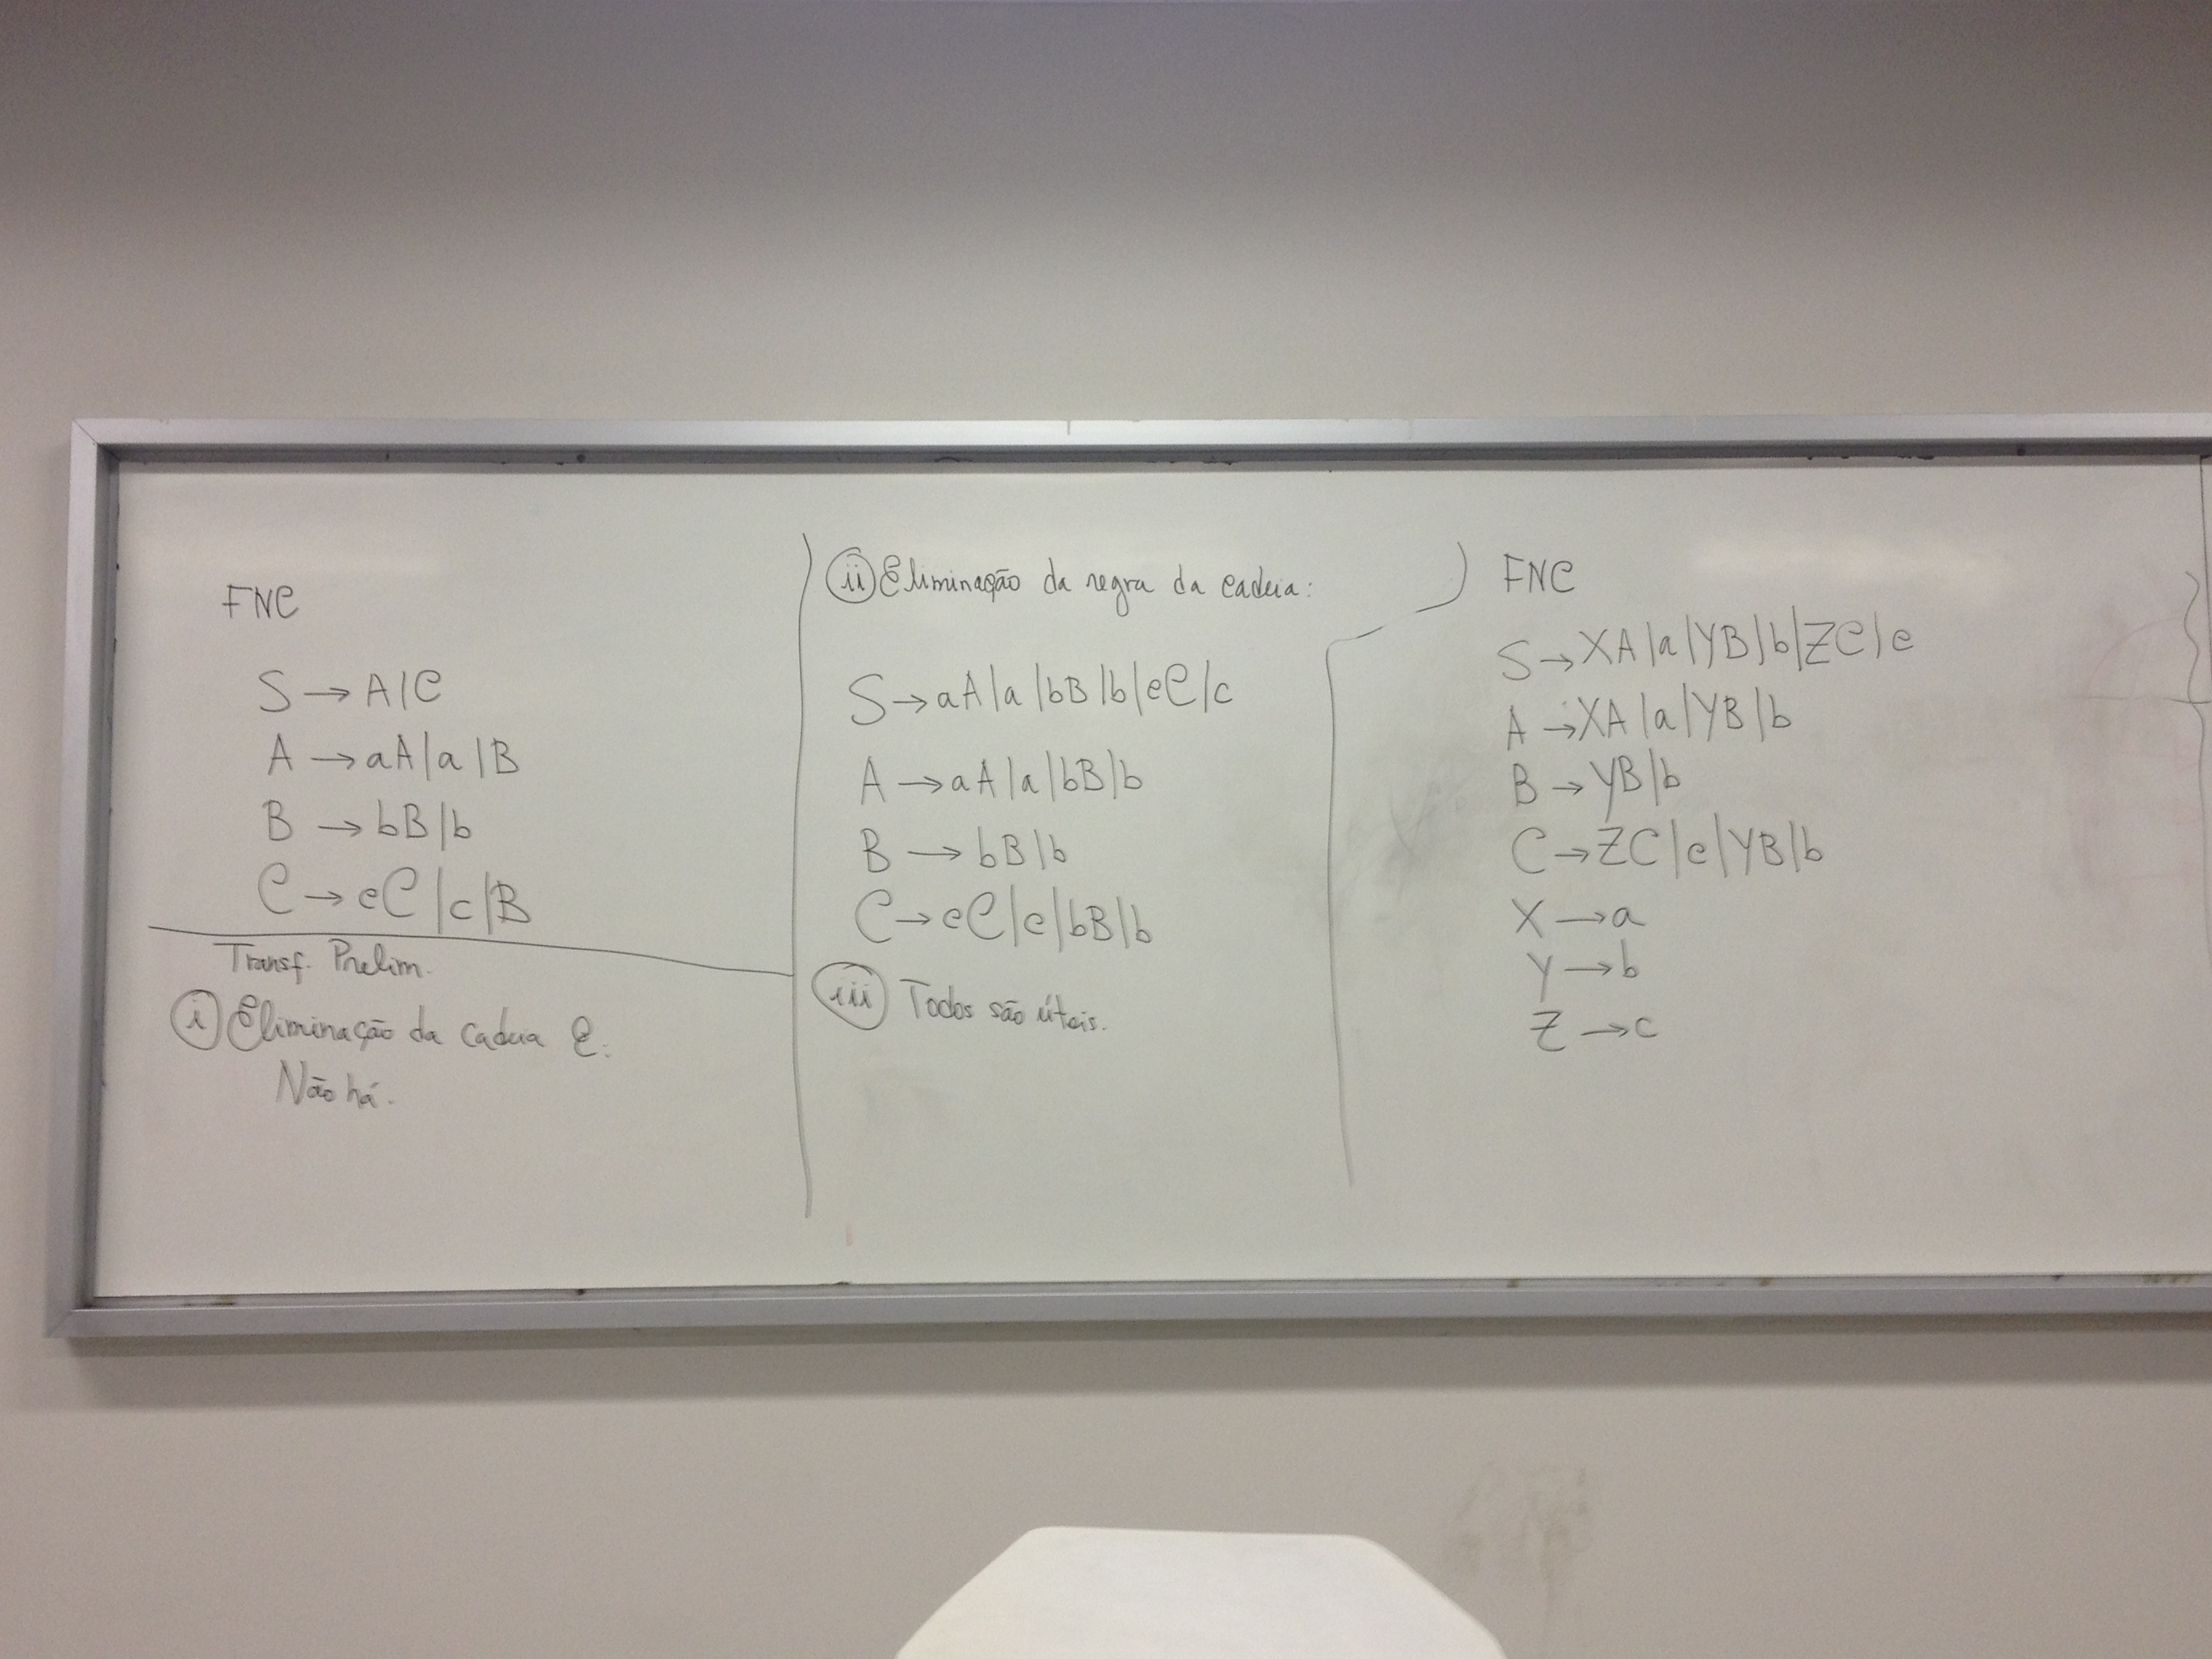 FNC
S → A|C
A → aA|a|B
B → bB|b
C → cC|c|B
Transf. Prelim.
(i) Eliminação da cadeia ε:
Não há.
(ii) Eliminação da regra da cadeia:
S → aA|a|bB|b|cC|c
A → aA|a|bB|b
B → bB|b
C → cC|c|bB|b
(iii) Todos são úteis.
FNC
S → XA|a|YB|b|ZC|c
A → XA|a|YB|b
B → YB|b
C → ZC|c|YB|b
X → a
Y → b
Z → c